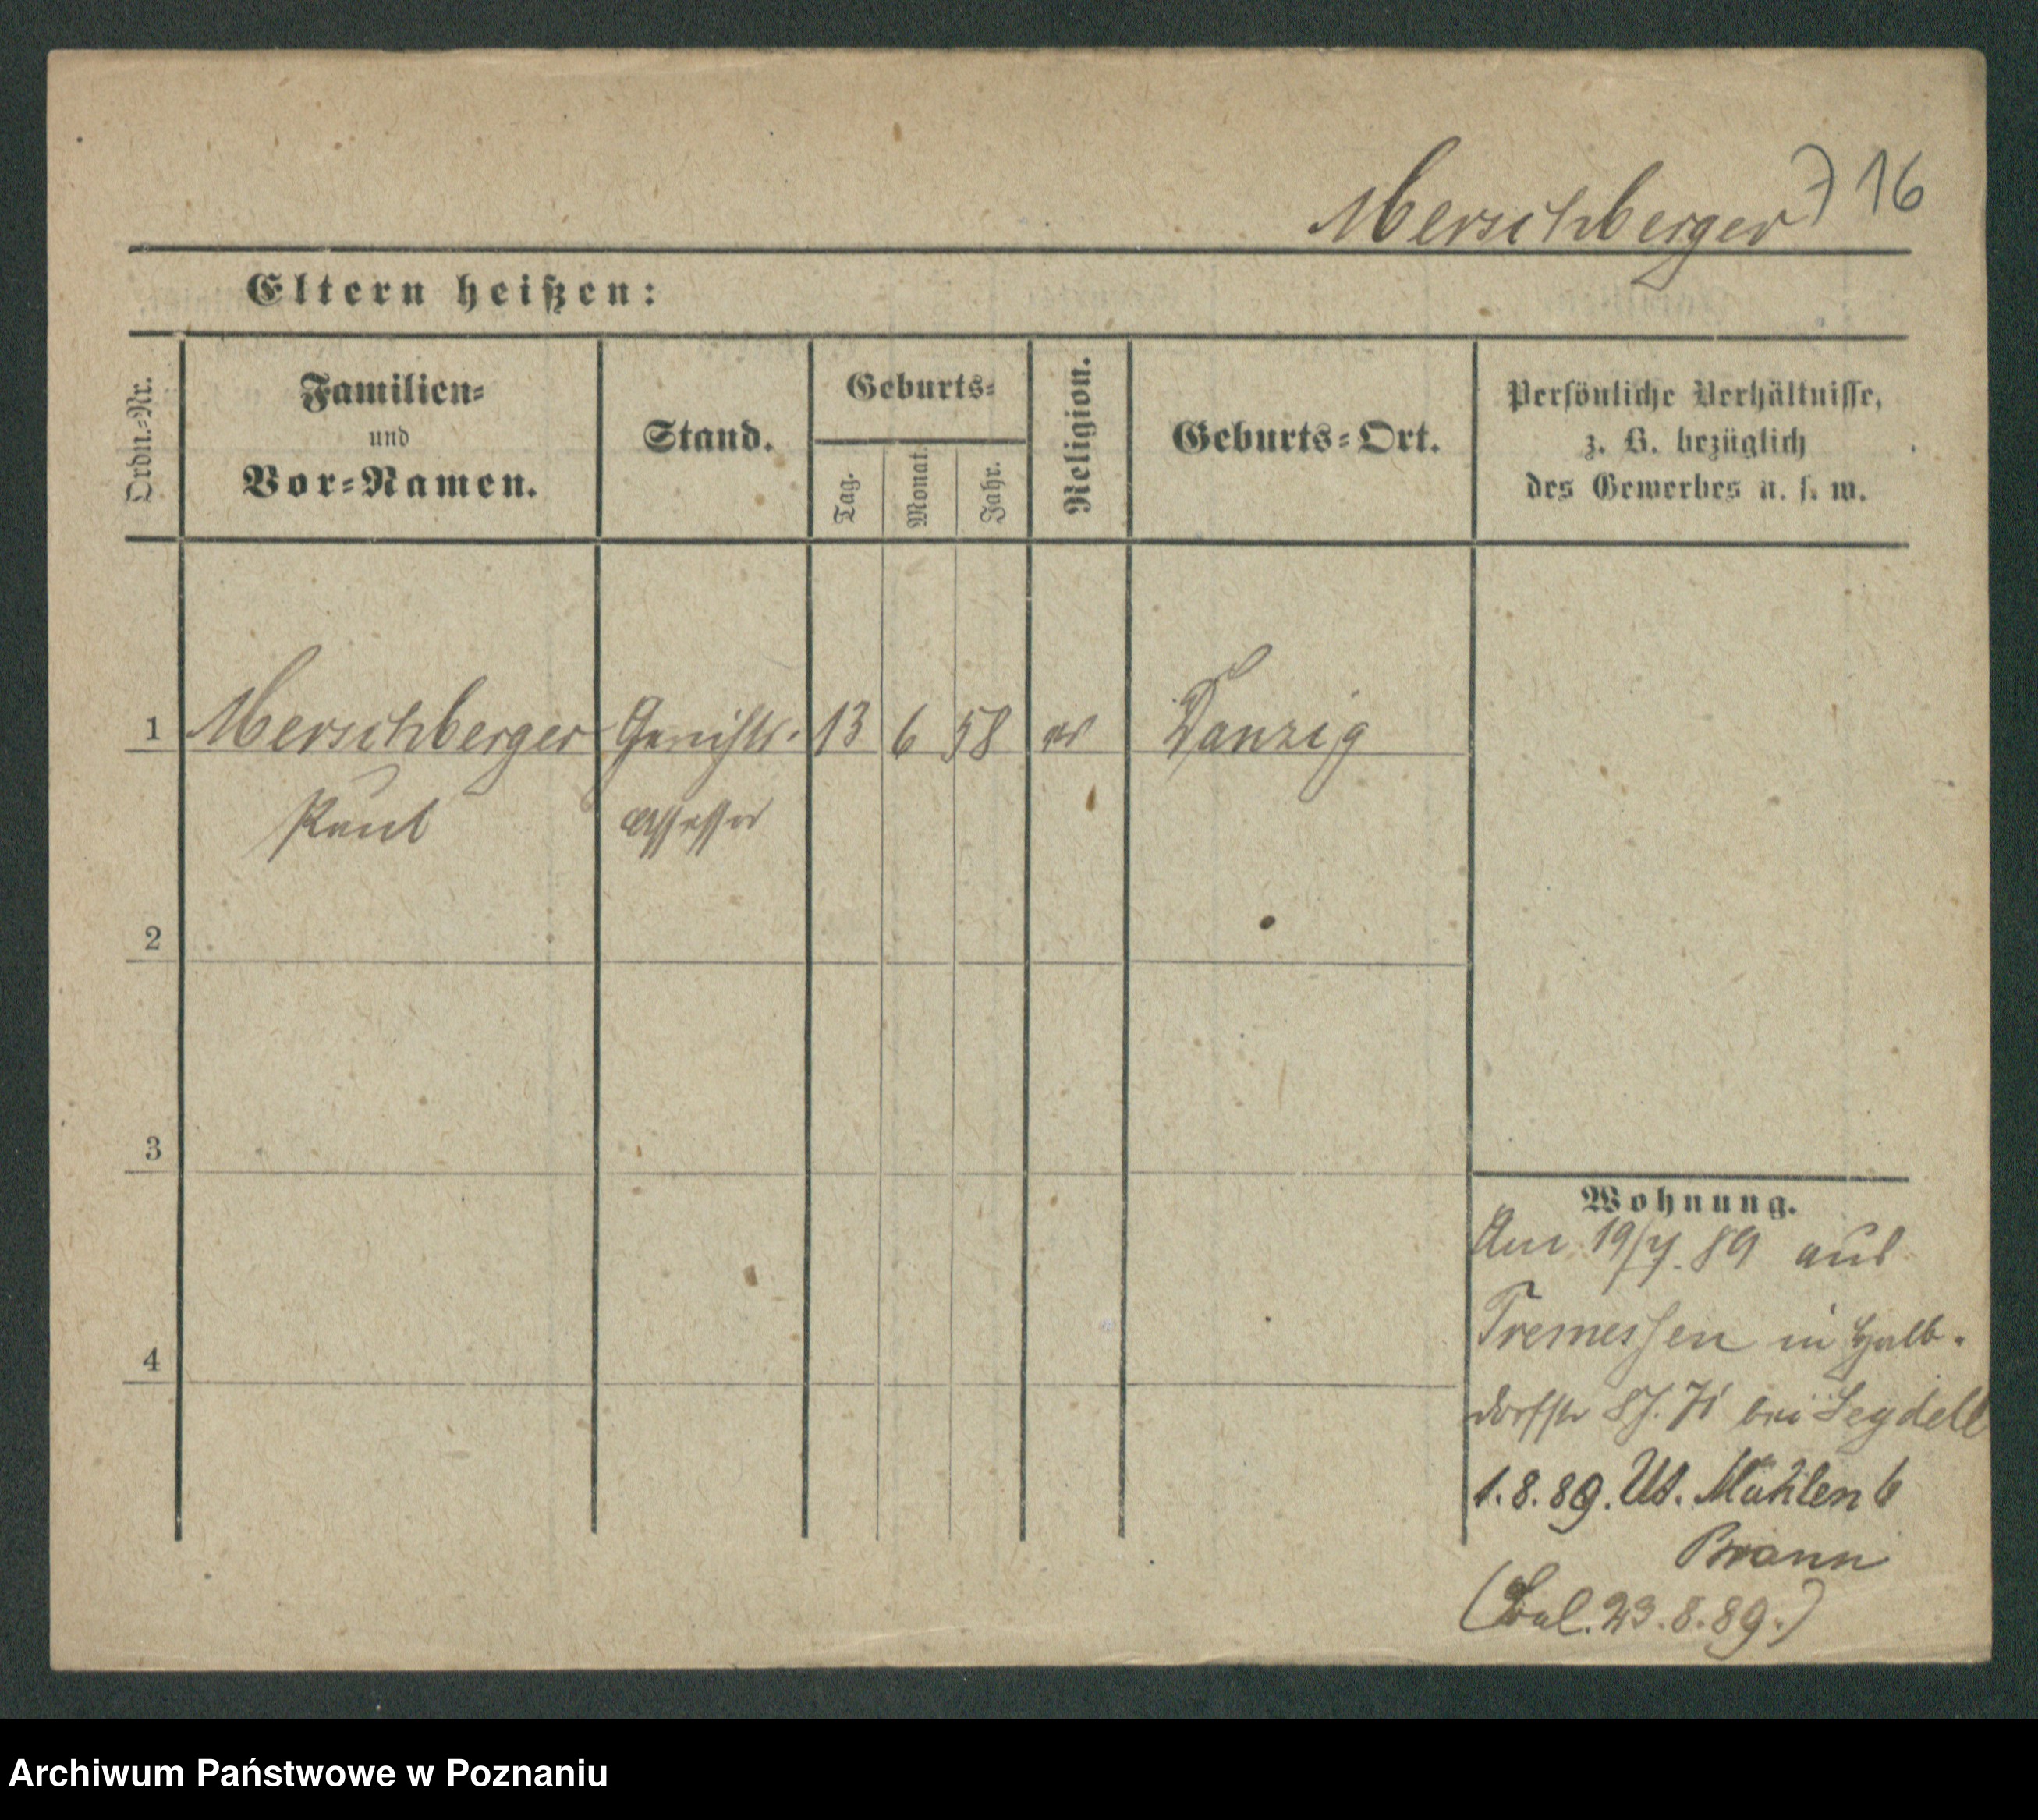 Merschberger 716
Eltern heißen:
Ordn.-Nr.
Familien-
und
Vor-Namen.
Stand.
Geburts-
Tag.
Monat.
Jahr.
Religion.
Geburts-Ort.
Persönliche Verhältnisse,
z. B. bezüglich
des Gewerbes u. s. w.
1 Merschberger Gerichts- 13 6 58 ev Danzig
Paul Assessor
2
3
4
Wohnung.
Am 19/7. 89 aus
Tremessen in Halb-
dorfstr bei Seydell
1.8.89. Ut. Mühlen 6
Brann
23.8.89.)
Archiwum Państwowe w Poznaniu